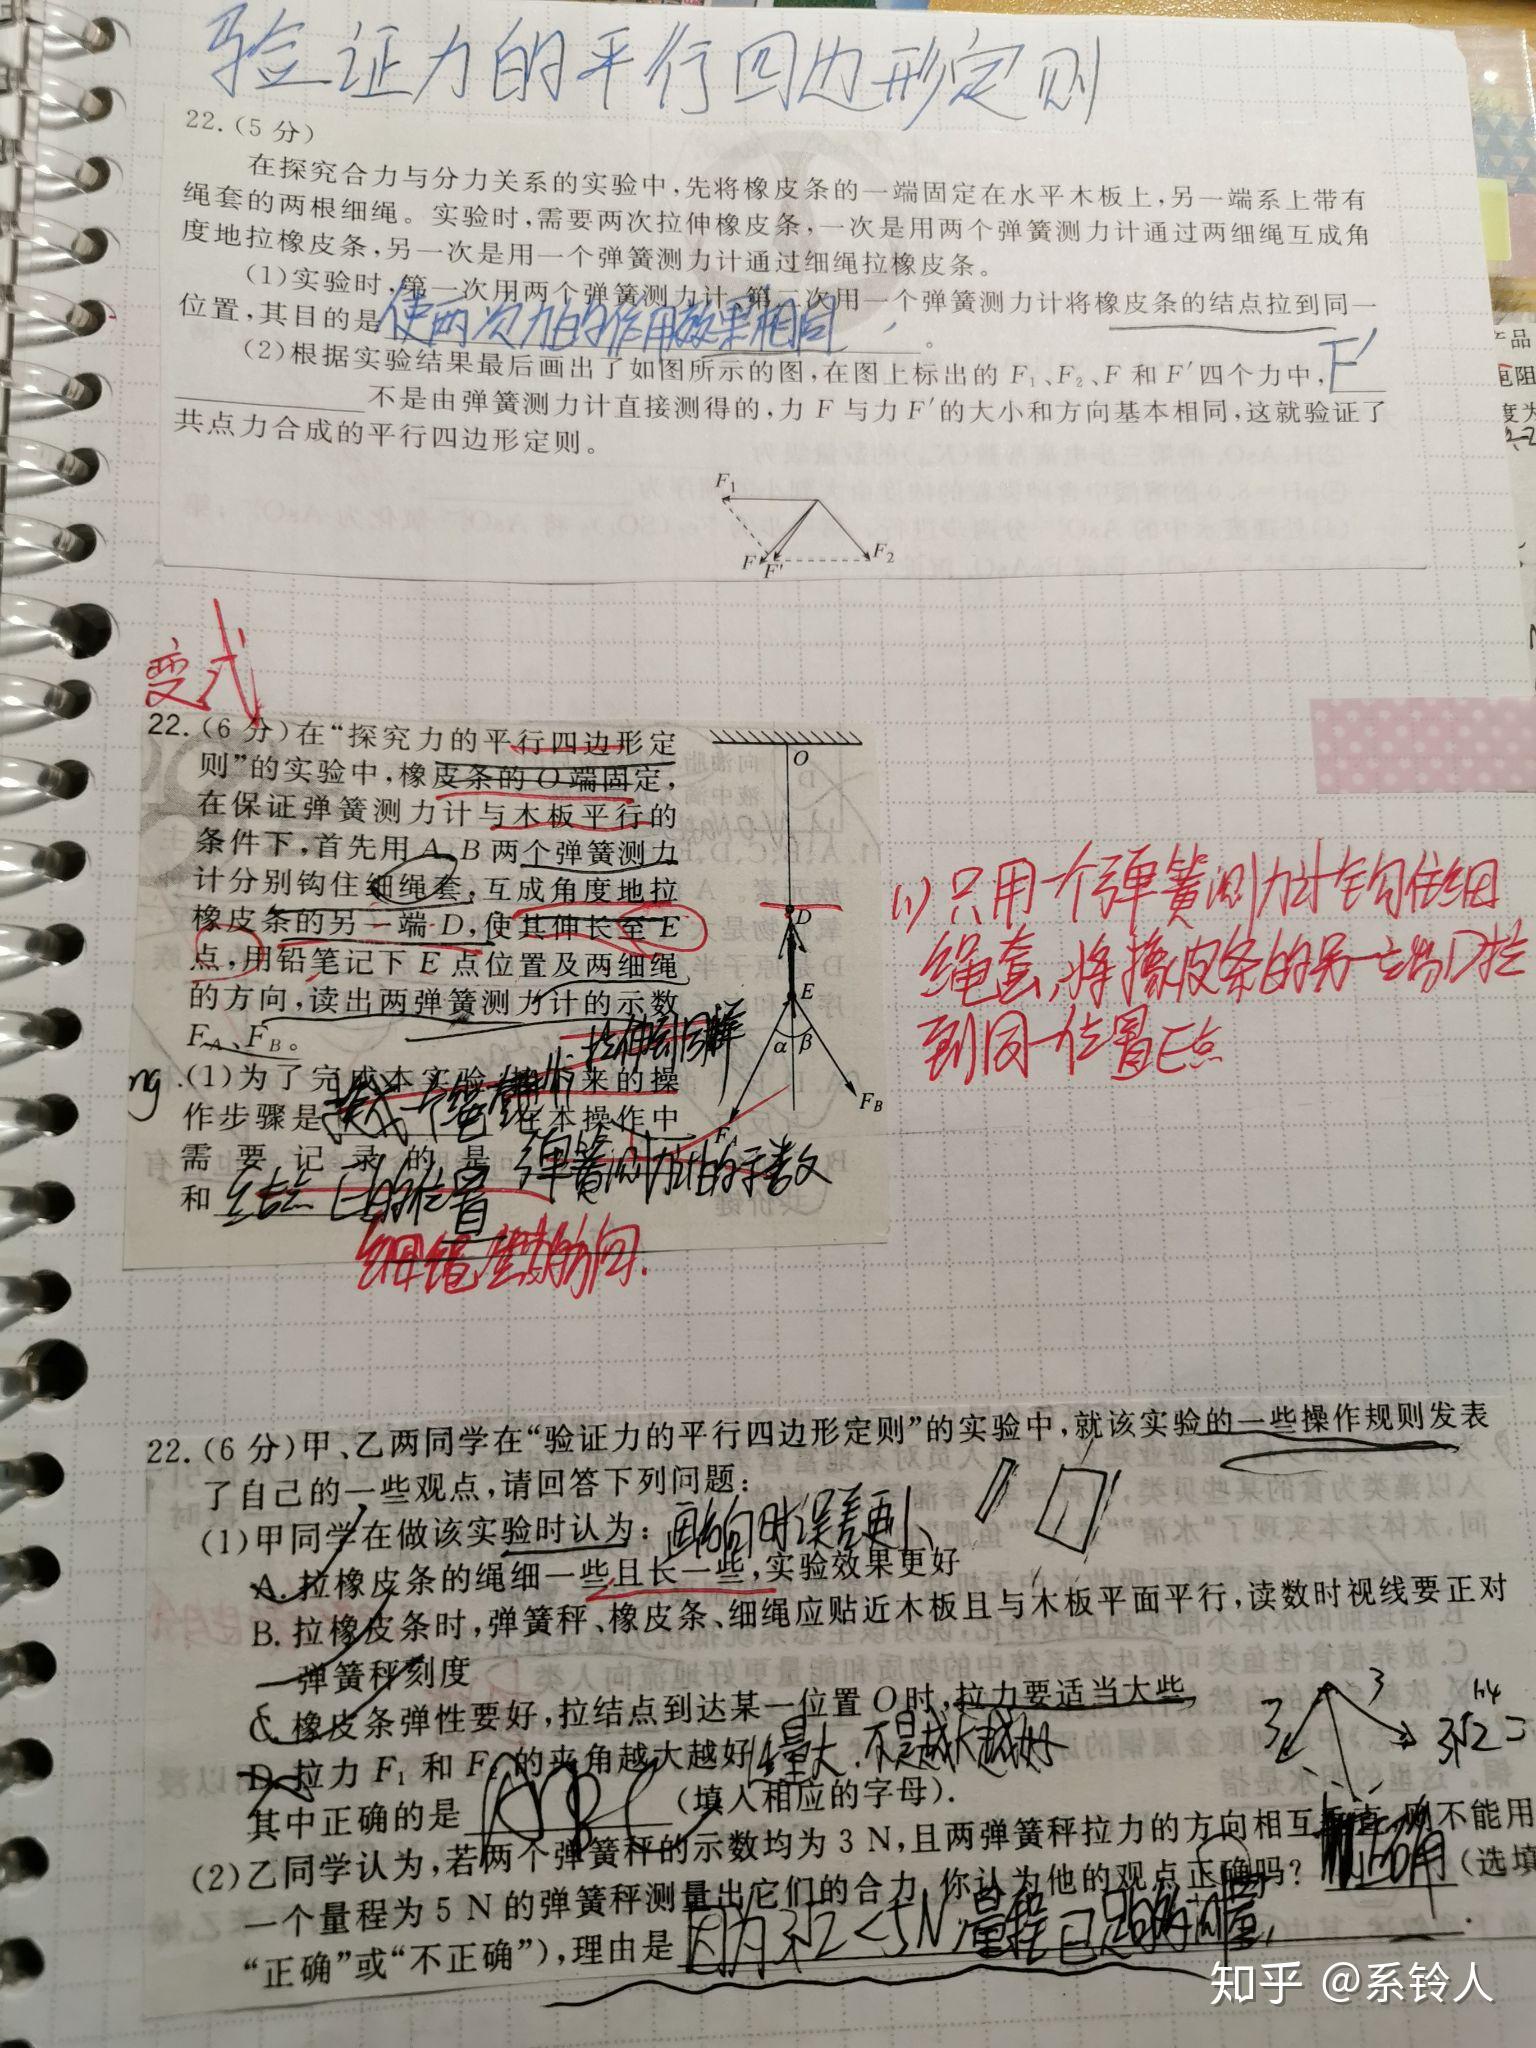 验证力的平行四边形定则
22.(5分)
在探究合力与分力关系的实验中,先将橡皮条的一端固定在水平木板上,另一端系上带有
绳套的两根细绳。实验时,需要两次拉伸橡皮条,一次是用两个弹簧测力计通过两细绳互成角
度地拉橡皮条,另一次是用一个弹簧测力计通过细绳拉橡皮条。
(1)实验时,第一次用两个弹簧测力计、第二次用一个弹簧测力计将橡皮条的结点拉到同一
位置,其目的是使两次力的作用效果相同。
(2)根据实验结果最后画出了如图所示的图,在图上标出的 F₁、F₂、F 和 F′四个力中, F′
不是由弹簧测力计直接测得的,力 F 与力 F′的大小和方向基本相同,这就验证了
共点力合成的平行四边形定则。
F₁
F F′ F₂
变式
22.(6分)在“探究力的平行四边形定
则”的实验中,橡皮条的 O 端固定,
在保证弹簧测力计与木板平行的
条件下,首先用 A、B 两个弹簧测力
计分别钩住细绳套,互成角度地拉
橡皮条的另一端 D,使其伸长至 E
点,用铅笔记下 E 点位置及两细绳
的方向,读出两弹簧测力计的示数
F_A、F_B。
O
D
E
α β
F_A
F_B
(1)只用一个弹簧测力计钩住细
绳套,将橡皮条的另一端D拉
到同一位置E点
ng
(1)为了完成本实验 来的操
作步骤是 在本操作中
需要记录的是 弹簧测力计的示数
和 结点E的位置
细绳 方向.
22.(6分)甲、乙两同学在“验证力的平行四边形定则”的实验中,就该实验的一些操作规则发表
了自己的一些观点,请回答下列问题:
(1)甲同学在做该实验时认为: 画方向时误差更小
A.拉橡皮条的绳细一些且长一些,实验效果更好
B.拉橡皮条时,弹簧秤、橡皮条、细绳应贴近木板且与木板平面平行,读数时视线要正对
弹簧秤刻度
C.橡皮条弹性要好,拉结点到达某一位置 O 时,拉力要适当大些
D.拉力 F₁ 和 F₂ 的夹角越大越好 适量大.不是越大越好
其中正确的是 ABC (填入相应的字母).
3 3 3√2= 1.4
(2)乙同学认为,若两个弹簧秤的示数均为 3 N,且两弹簧秤拉力的方向相互垂直,则不能用
一个量程为 5 N 的弹簧秤测量出它们的合力,你认为他的观点正确吗? 不正确 (选填
“正确”或“不正确”),理由是 因为3√2<5N 量程已足够测量,
知乎 @系铃人